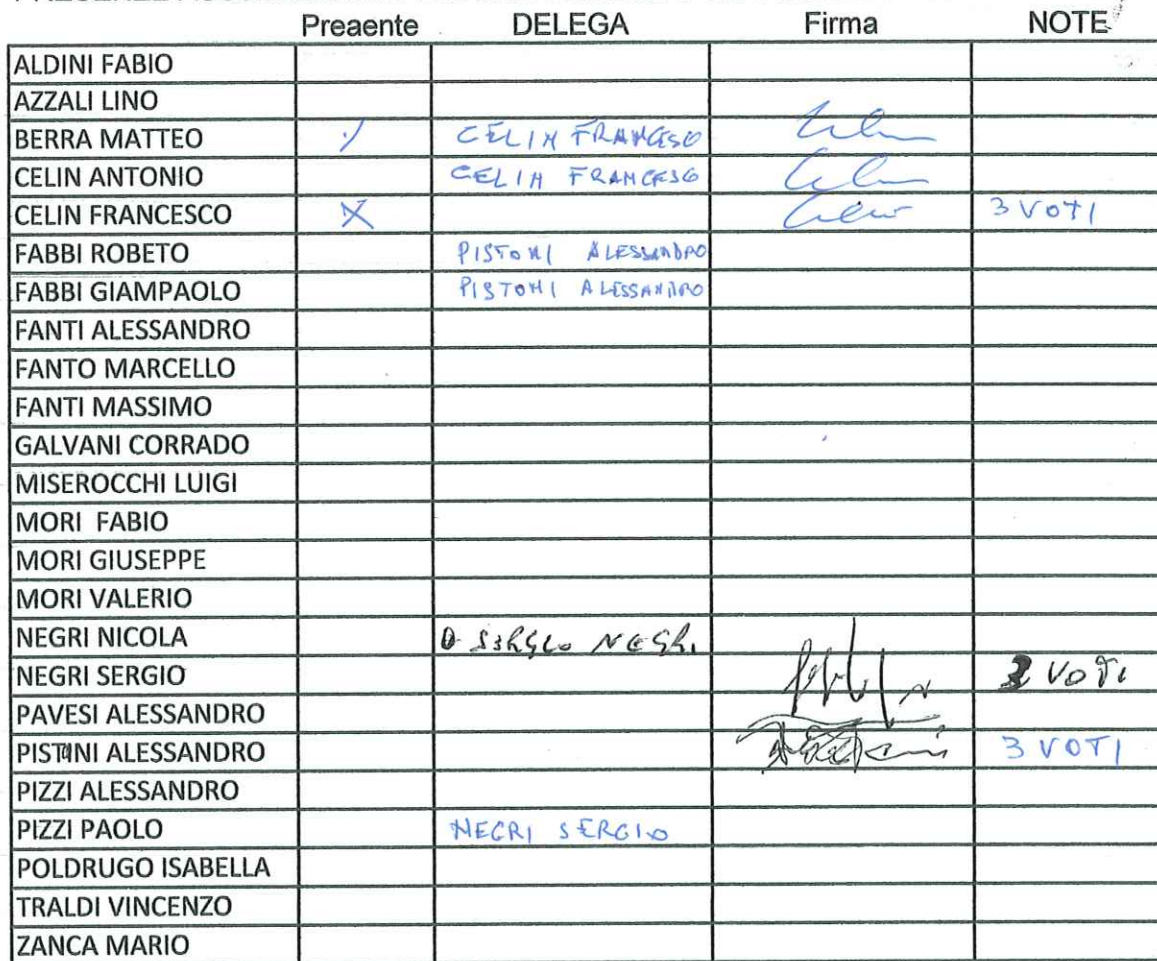 Preaente DELEGA Firma NOTE
ALDINI FABIO
AZZALI LINO
BERRA MATTEO CELIN FRANCESCO
CELIN ANTONIO CELIN FRANCESCO
CELIN FRANCESCO X 3 VOTI
FABBI ROBETO PISTONI ALESSANDRO
FABBI GIAMPAOLO PISTONI ALESSANDRO
FANTI ALESSANDRO
FANTO MARCELLO
FANTI MASSIMO
GALVANI CORRADO
MISEROCCHI LUIGI
MORI FABIO
MORI GIUSEPPE
MORI VALERIO
NEGRI NICOLA SERGIO NEGRI
NEGRI SERGIO 3 VOTI
PAVESI ALESSANDRO
PISTONI ALESSANDRO 3 VOTI
PIZZI ALESSANDRO
PIZZI PAOLO NEGRI SERGIO
POLDRUGO ISABELLA
TRALDI VINCENZO
ZANCA MARIO